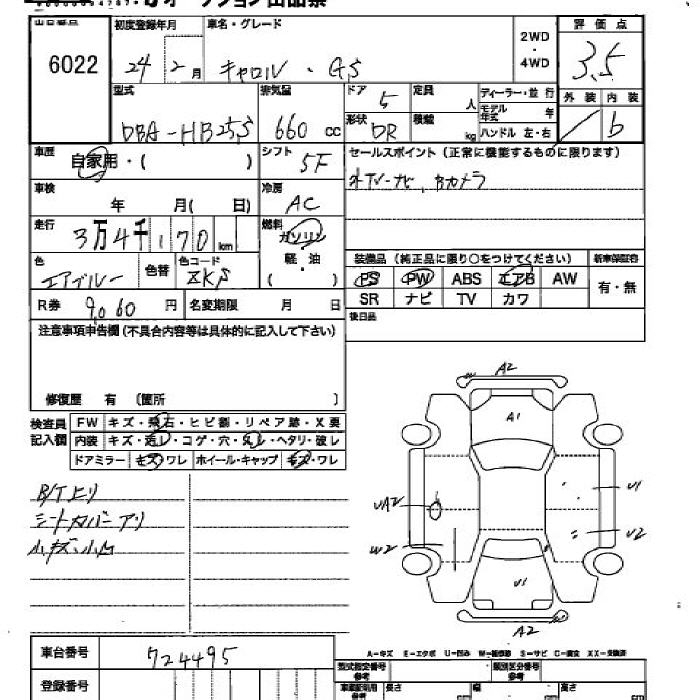 オークション出品票
出品番号 初度登録年月 車名・グレード 2WD・4WD 評価点
6022 24年2月 キャロル・GS 3.5
型式 排気量 ドア 5 定員 人 ディーラー・並行 外装 内装
DBA-HB25S 660cc 形状 DR 積載 kg モデル年式 年 b
ハンドル 左・右
車歴 自家用・( ) シフト 5F セールスポイント(正常に機能するものに限ります)
車検 年 月( 日) 冷房 AC 外TVナビ、Bカメラ
走行 3万4千170km 燃料 ガソリン
軽・油
( )
色 エアブルー 色替 色コード ZKS
装備品(純正品に限り○をつけてください) 新車保証書
PS PW ABS エアB AW 有・無
SR ナビ TV カワ
R券 9,060円 名変期限 月 日 後日品
注意事項申告欄(不具合内容等は具体的に記入して下さい)
修復歴 有 〔箇所 〕
検査員記入欄 FW キズ・飛石・ヒビ割・リペア跡・X要
内装 キズ・汚レ・コゲ・穴・スレ・ヘタリ・破レ
ドアミラー キズ・ワレ ホイール・キャップ キズ・ワレ
A2
A1
UA2
U1
W2
U2
U1
A2
B/T上リ
シートカバーアリ
小キズ、小凹
A-キズ E-エクボ U-凹み W-補修跡 S-サビ C-腐食 XX-交換済
車台番号 724495
型式指定番号 参考 類別区分番号 参考
登録番号
長さ 幅 高さ